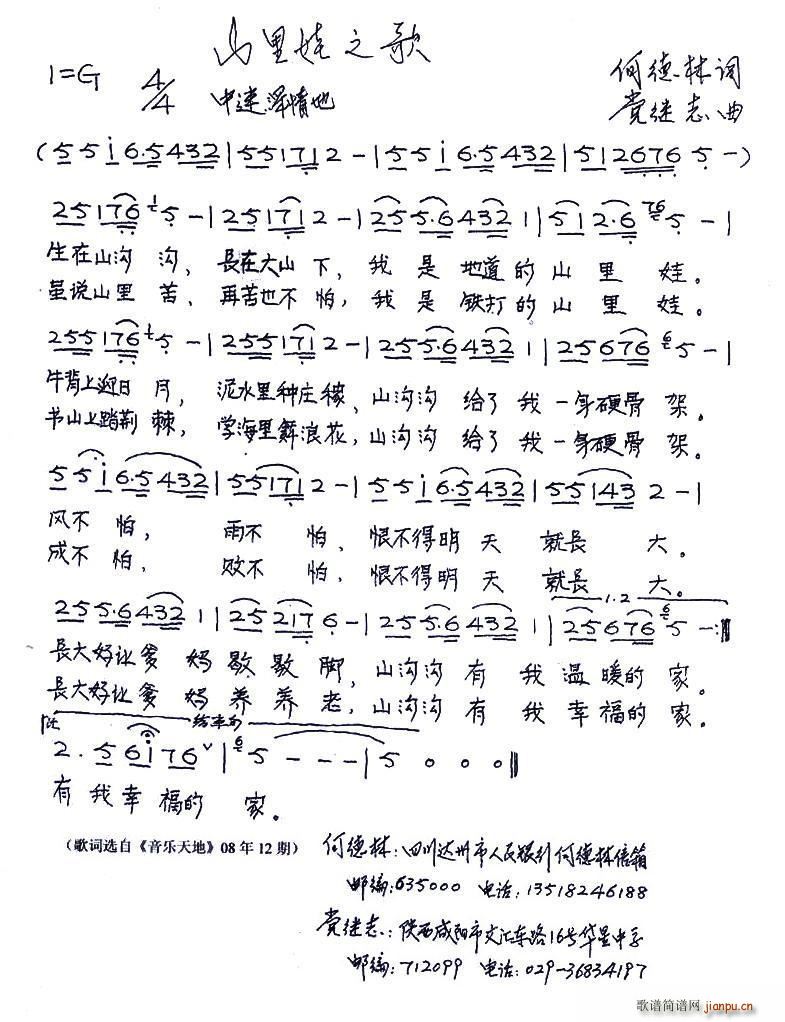 山里娃之歌
1=G 4/4 中速 深情地
何德林 词
党继志 曲
(5 5 i 6·5432 | 55171 2 - | 5 5 i 6·5432 | 512676 5 - )
25176 5 - | 25171 2 - | 255·6432 1 | 5 1 2·6 76 5 - |
生在山沟 沟, 長在大山 下, 我 是 地道的 山 里 娃。
虽说山里 苦, 再苦也不 怕, 我 是 铁打的 山 里 娃。
255176 5 - | 255171 2 - | 255·6432 1 | 25676 6 5 - |
牛背上迎日 月, 泥水里种庄稼, 山沟沟 给了 我 一身硬骨 架。
书山上踏荆 棘, 学海里舞浪花, 山沟沟 给了 我 一身硬骨 架。
5 5 i 6·5432 | 55171 2 - | 5 5 i 6·5432 | 55143 2 - |
风不 怕, 雨不 怕, 恨不得明 天 就長 大。
成不 怕, 败不 怕, 恨不得明 天 就長 大。
1.2
255·6432 1 | 25217 6 - | 255·6432 1 | 25676 6 5 - :‖
長大好让爹 妈 歇 歇 脚, 山沟沟 有 我 温 暖的 家。
長大好让爹 妈 养 养 老, 山沟沟 有 我 幸 福的 家。
结束句
2· 5 6 i 7 6 ∨ | 6 5 - - - | 5 0 0 0 ‖
有 我 幸 福的 家。
(歌词选自《音乐天地》08 年 12 期)
何德林: 四川达州市人民银行何德林信箱
邮编:635000 电话: 13518246188
党继志: 陕西咸阳市文汇东路16号华星中子
邮编: 712099 电话: 029-36834197
歌谱简谱网
jianpu.cn